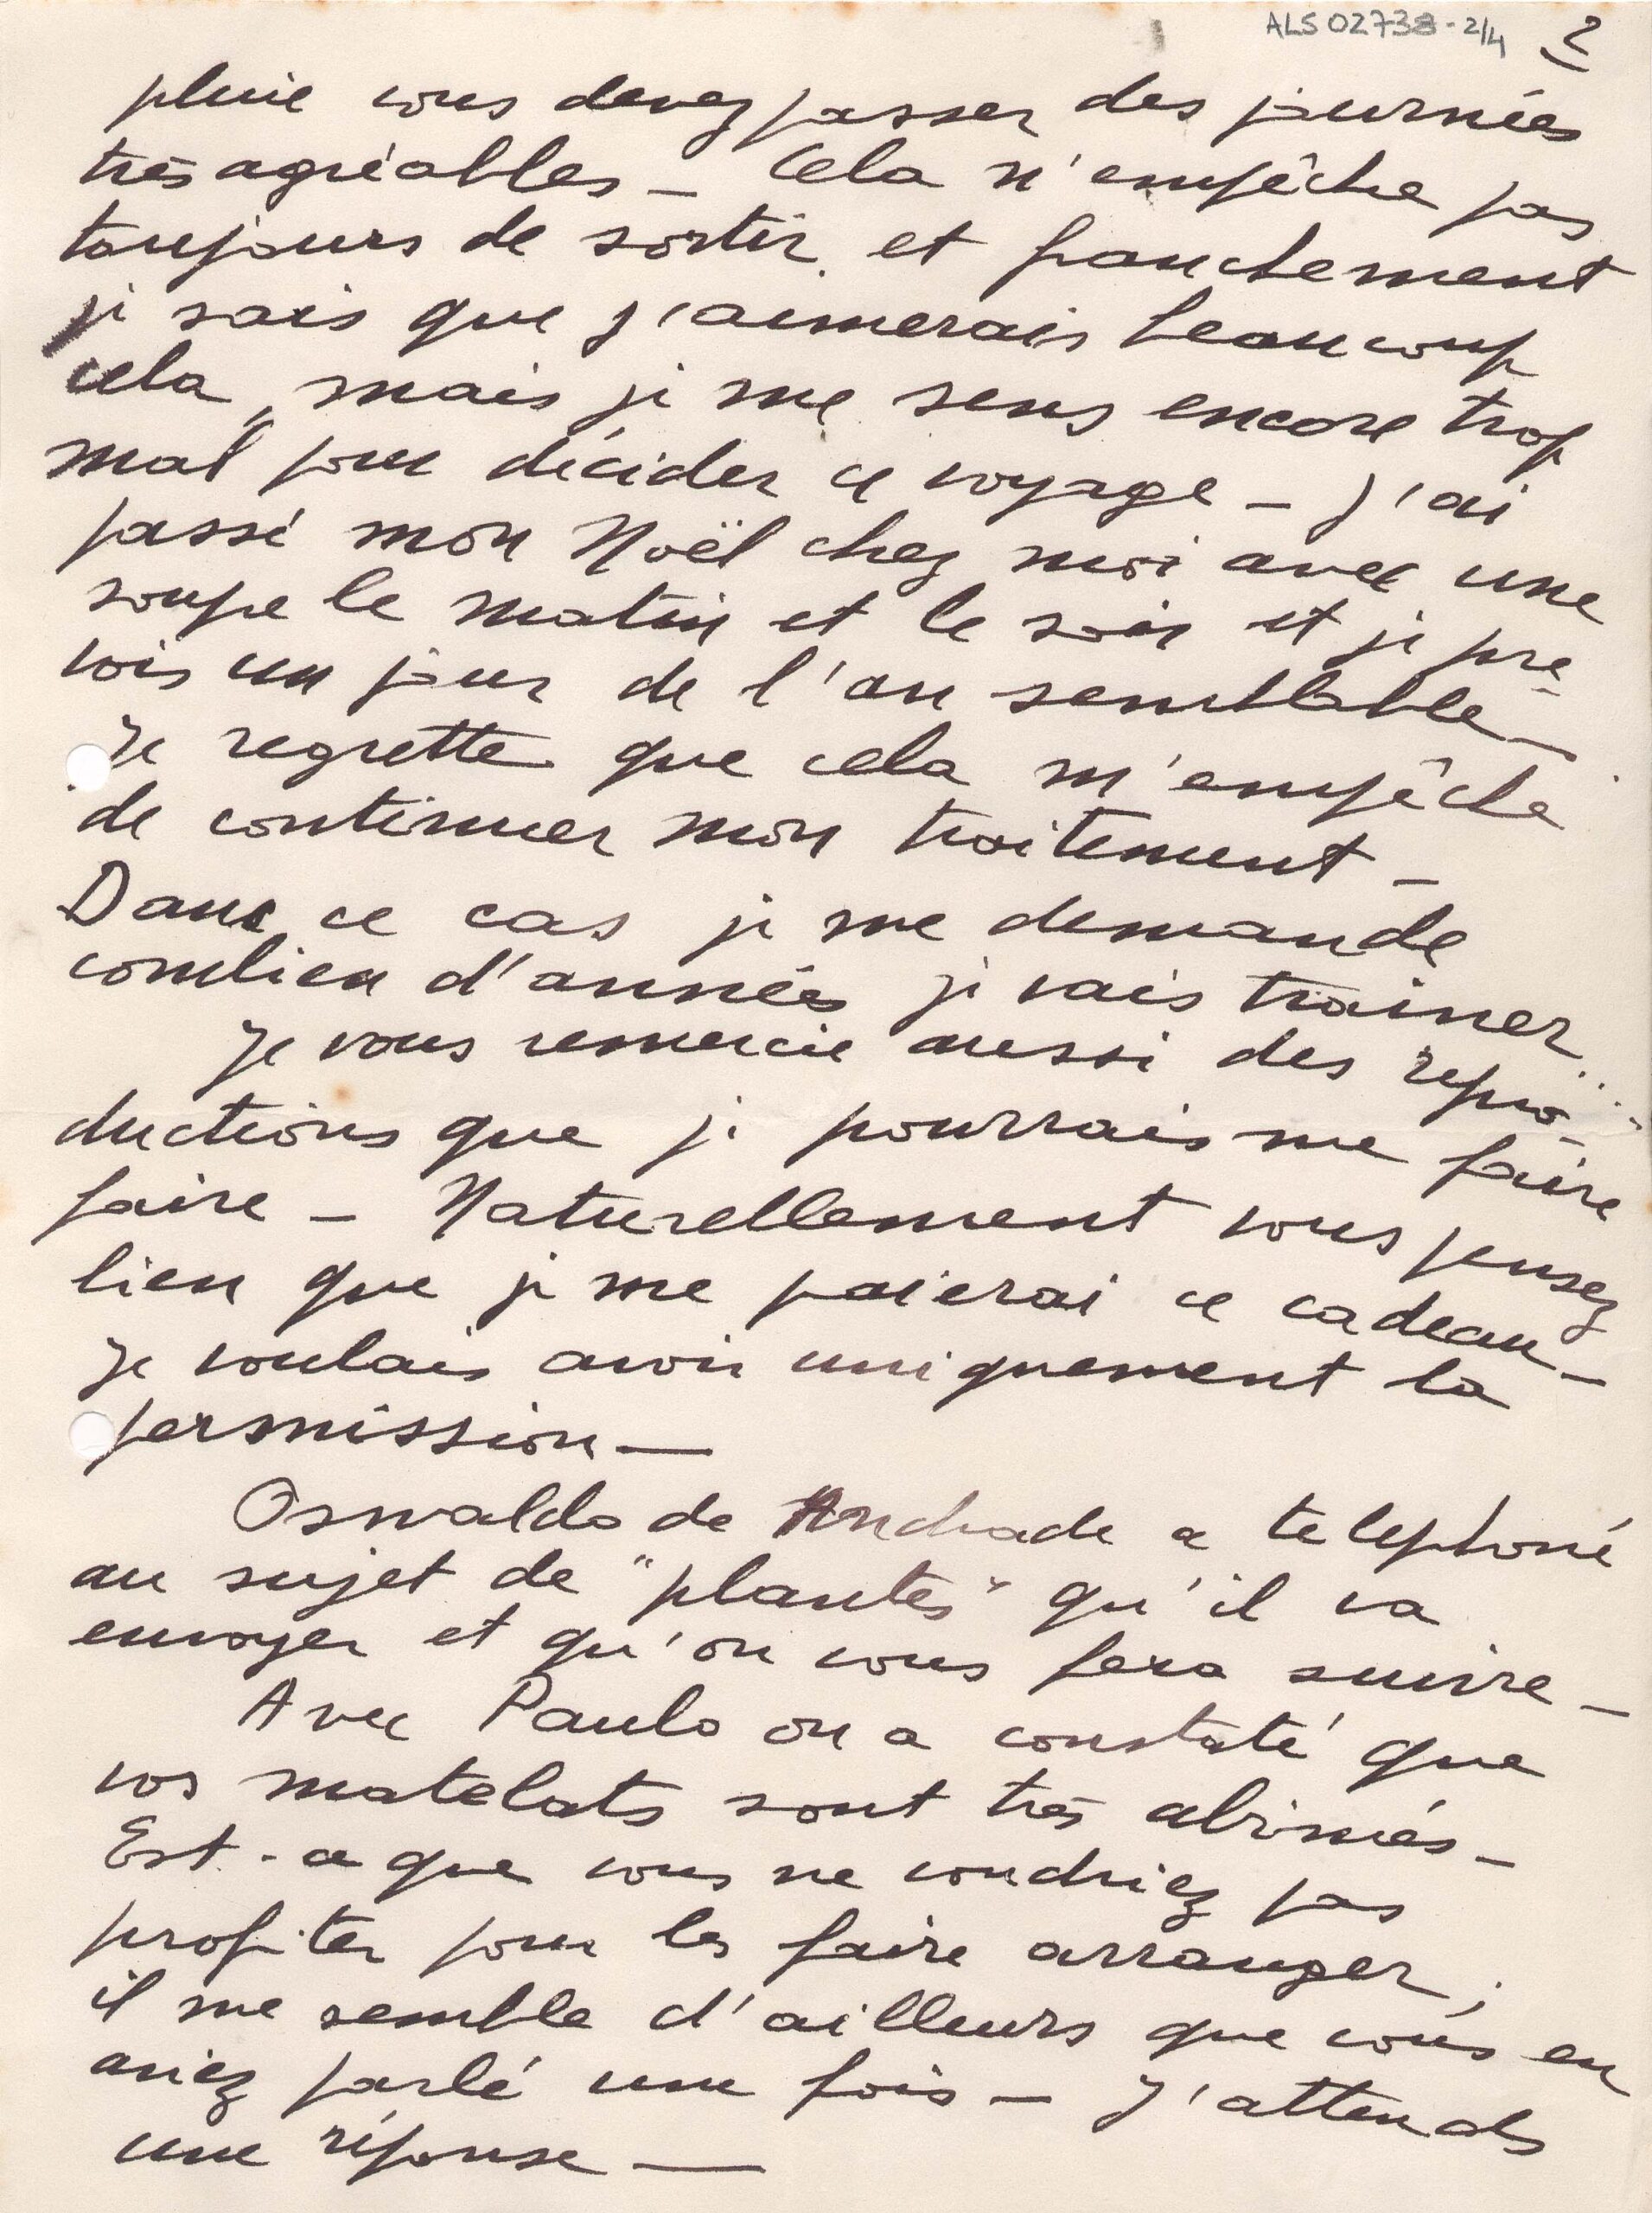 ALS 02738-2/4 2
pluie vous devez passer des journées
très agréables – Cela n'empêche pas
toujours de sortir et franchement
je sais que j'aimerais beaucoup
cela, mais je me sens encore trop
mal pour décider ce voyage – J'ai
passé mon Noël chez moi avec une
soupe le matin et le soir et je pré-
vois un jour de l'an semblable –
Je regrette que cela m'empêche
de continuer mon traitement –
Dans ce cas je me demande
combien d'années je vais trainer...
Je vous remercie aussi des repro-
ductions que je pourrais me faire
faire – Naturellement vous pensez
bien que je me paierai ce cadeau –
Je voulais avoir uniquement la
permission –
Oswaldo de Andrade a telephoné
au sujet de "plantes" qu'il va
envoyer et qu'on vous fera suivre –
Avec Paulo on a constaté que
vos matelats sont très abimés –
Est-ce que vous ne voudriez pas
profiter pour les faire arranger ;
il me semble d'ailleurs que vous en
aviez parlé une fois – J'attends
une réponse –